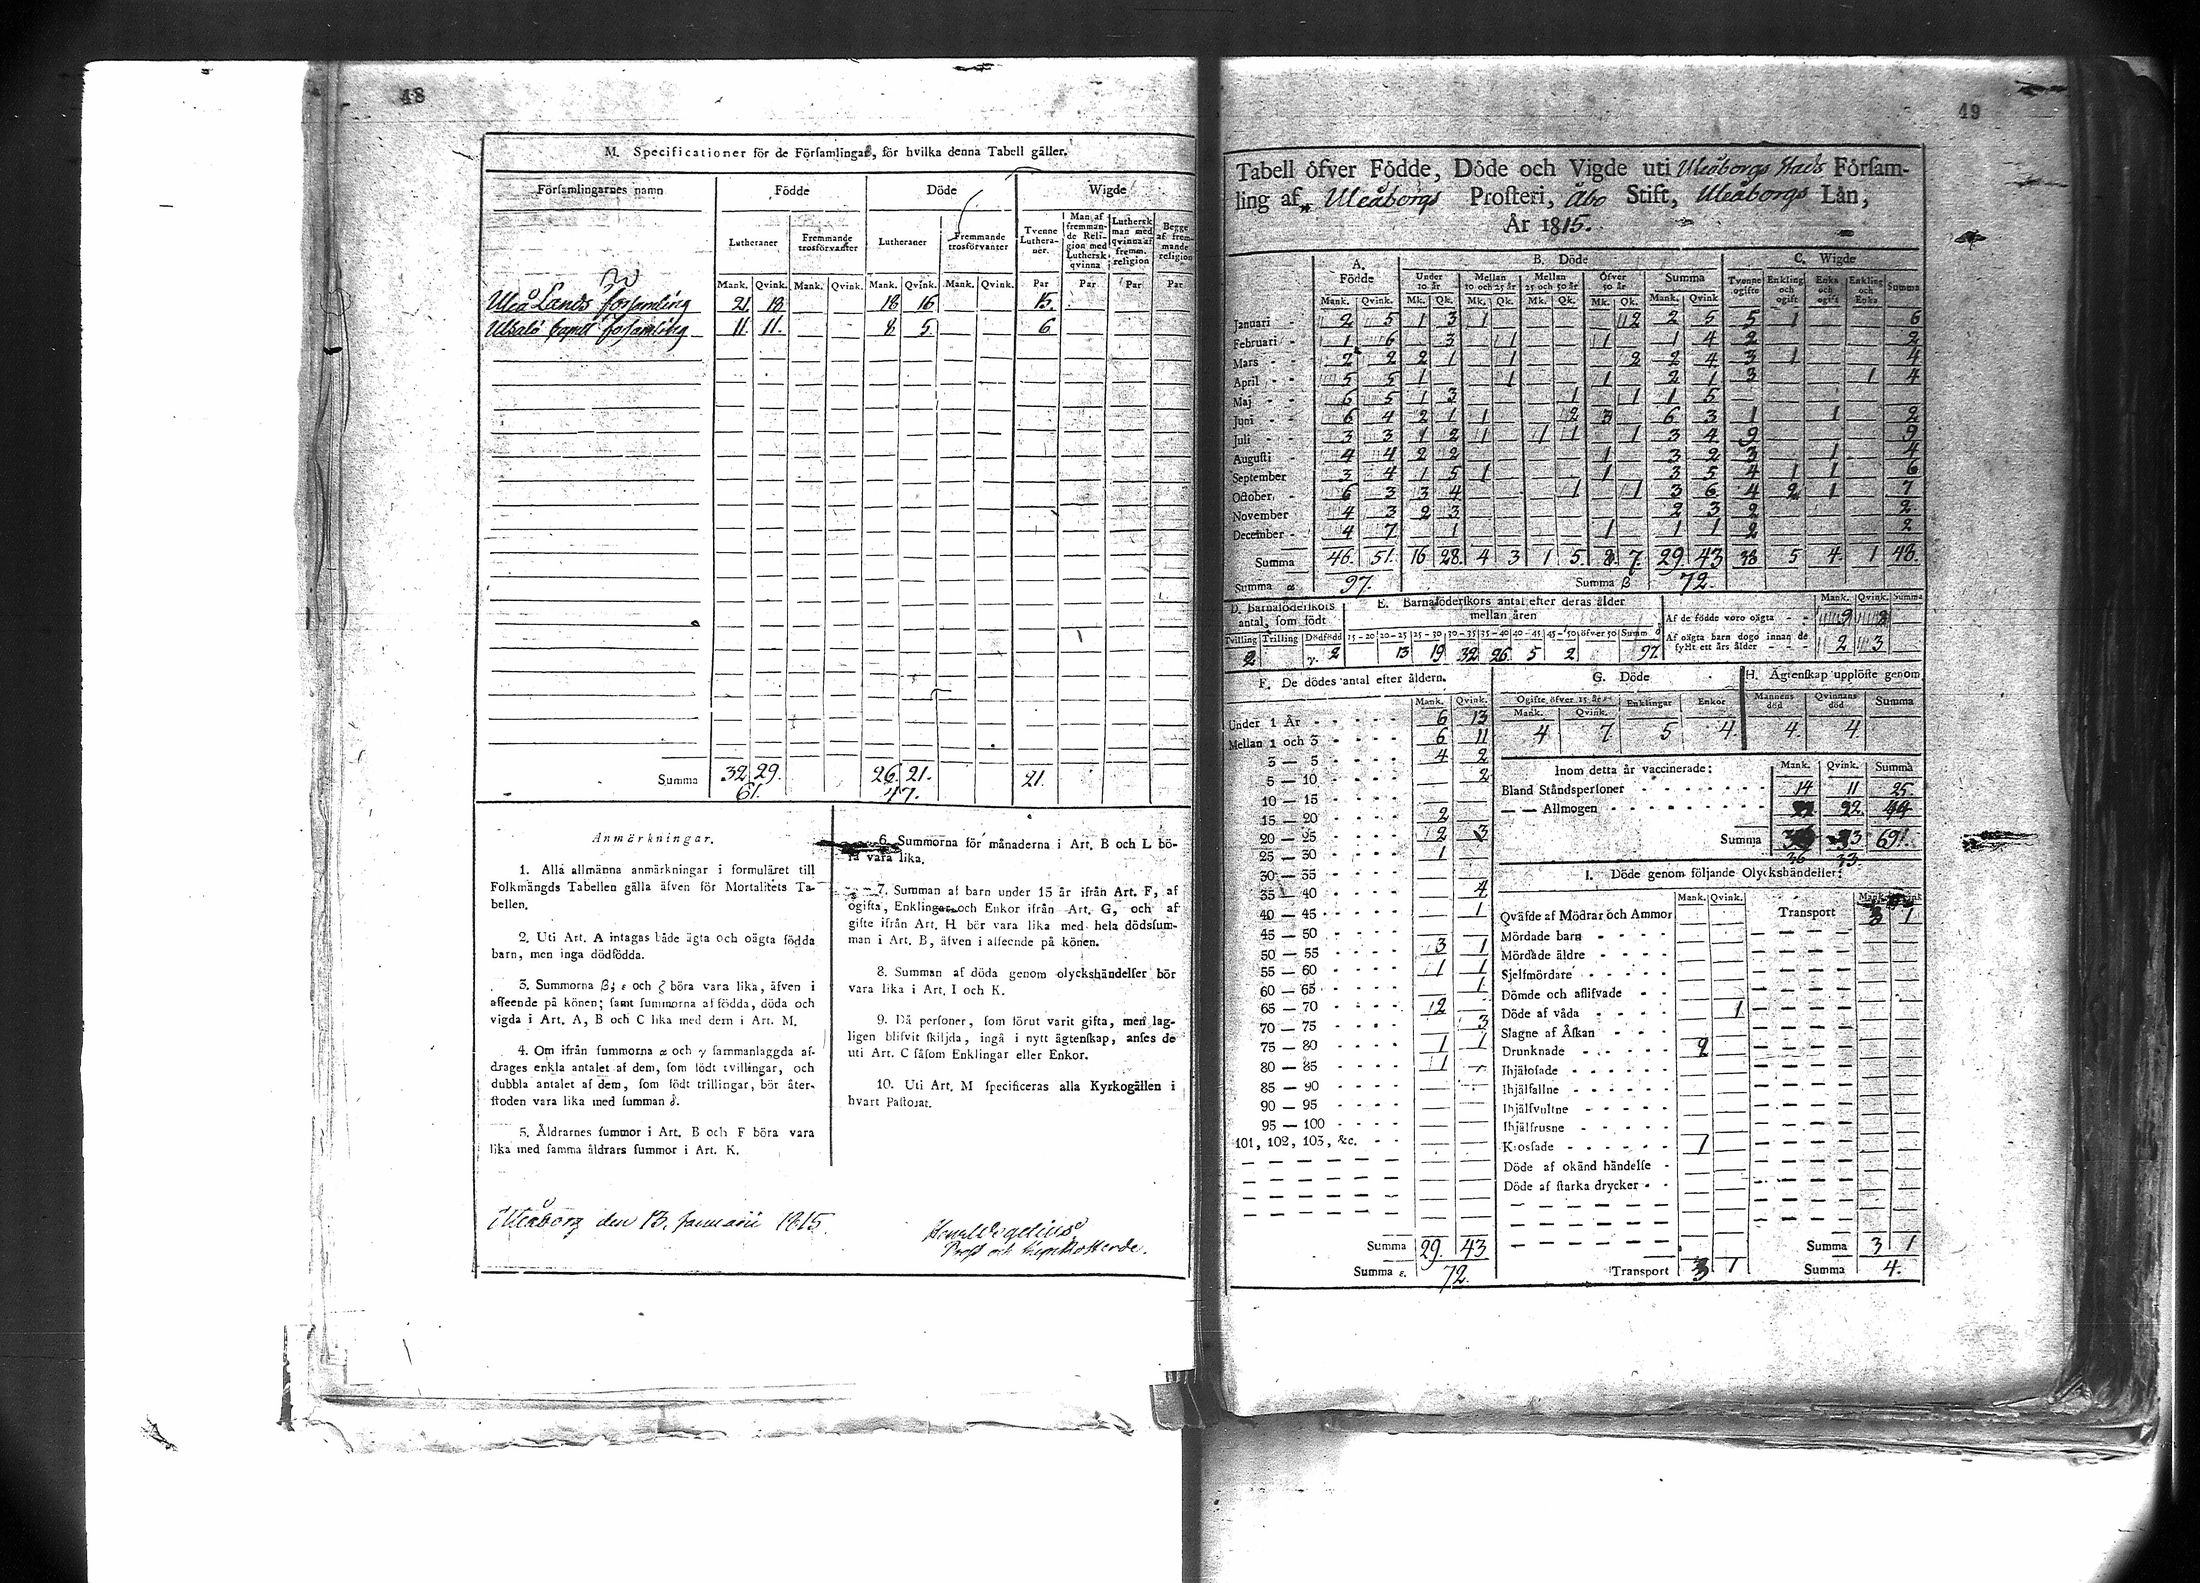 48
M. Specificationer för de Förſamlingar, för hvilka denna Tabell gäller.
Förſamlingarnes namn Födde Döde Wigde
Lutheraner Fremmande trosförvanter Lutheraner Fremmande trosförvanter Tvenne Lutheraner. Man af fremmande Religion med Luthersk qvinna Luthersk man med qvinna af fremm. religion Begge af fremmande religion
Mank. Qvink. Mank. Qvink. Mank. Qvink. Mank. Qvink. Par Par Par Par
Uleå Lands forsamling 21 18 18 16 15.
forsamling 11 11. 8 5 6
Summa 32 29. 26. 21. 21.
61. 47.
Anmärkningar.
1. Alla allmänna anmärkningar i formuläret till
Folkmängds Tabellen gälla äfven för Mortalitets Ta-
bellen.
2. Uti Art. A intagas både ägta och oägta födda
barn, men inga dödfödda.
3. Summorna β, ε och ζ böra vara lika, äfven i
affeende på könen; famt fummorna af födda, döda och
vigda i Art. A, B och C lika med dem i Art. M.
4. Om ifrån fummorna α och γ fammanlaggda af-
drages enkla antalet af dem, fom födt tvillingar, och
dubbla antalet af dem, fom födt trillingar, bör åter-
ftoden vara lika med fumman δ.
5. Åldrarnes fummor i Art. B och F böra vara
lika med famma åldrars fummor i Art. K.
6. Summorna för månaderna i Art. B och L bö-
ra vara lika.
7. Summan af barn under 15 år ifrån Art. F, af
ogifta, Enklingar och Enkor ifrån Art. G, och af
gifte ifrån Art. H bör vara lika med hela dödsfum-
man i Art. B, äfven i affeende på könen.
8. Summan af döda genom olyckshändelfer bör
vara lika i Art. I och K.
9. Då perfoner, fom förut varit gifta, men lag-
ligen blifvit fkiljda, ingå i nytt ägtenfkap, anfes de
uti Art. C fåfom Enklingar eller Enkor.
10. Uti Art. M fpecificeras alla Kyrkogällen i
hvart Paftorat.
Uleåborg den 13. Januarii 1815.
Prost och Kyrkoherde.
49
Tabell öfver Födde, Döde och Vigde uti Uleåborgs Stads Förſam-
ling af Uleåborgs Profteri, Åbo Stift, Uleåborgs Län,
År 1815.
A. Födde B. Döde C. Wigde
Under 10 år Mellan 10 och 25 år Mellan 25 och 50 år Öfver 50 år Summa Tvenne ogifte Enkling och ogift Enka och ogift Enkling och Enka Summa
Mank. Qvink. Mk. Qk. Mk. Qk. Mk. Qk. Mk. Qk. Mank. Qvink
Januari 2 5 1 3 1 2 2 5 5 1 6
Februari 1 6 3 1 1 1 4 2 2
Mars 2 2 2 1 1 2 2 4 3 1 4
April 5 5 1 1 1 2 1 3 1 4
Maj 6 5 1 3 1 1 1 5
Juni 6 4 2 1 1 2 3 6 3 1 1 2
Juli 3 3 1 2 1 1 1 1 3 4 9 9
Augufti 4 4 2 2 1 3 2 3 1 4
September 3 4 1 5 1 1 3 5 4 1 1 6
October 6 3 3 4 1 1 3 6 4 2 1 7
November 4 3 2 3 2 3 2 2
December 4 7 1 1 1 1 2 2
Summa 46. 51. 16 28. 4 3 1 5. 8. 7. 29. 43 38 5 4. 1 48.
Summa α 97. Summa β 72.
D. Barnaföderfkors antal, fom födt E. Barnaföderfkors antal efter deras ålder mellan åren Mank. Qvink. Summa
Tvilling Trilling Dödfödd 15–20 20–25 25–30 30–35 35–40 40–45 45–50 öfver 50 Summ δ
2 γ. 2 13 19 32 26 5 2 97.
Af de födde voro oägta 9 8
Af oägta barn dogo innan de fyllt ett års ålder 2 3
F. De dödes antal efter åldern.
Mank. Qvink.
Under 1 År 6 13
Mellan 1 och 3 6 11
3 — 5 4 2
5 — 10 2
10 — 15
15 — 20 2
20 — 25 2 3
25 — 30 1
30 — 35
35 — 40 4
40 — 45 1
45 — 50
50 — 55 3 1
55 — 60 1 1
60 — 65 1
65 — 70 2
70 — 75 3
75 — 80 1 1
80 — 85 1
85 — 90
90 — 95
95 — 100
101, 102, 103, &c.
Summa 29. 43
Summa ε. 72.
G. Döde H. Ägtenfkap upplöfte genom
Ogifte öfver 15 år Enklingar Enkor Mannens död Qvinnans död Summa
Mank. Qvink.
4 7 5 4. 4. 4.
Inom detta år vaccinerade: Mank. Qvink. Summa
Bland Ståndsperfoner 14 11 25.
— — Allmogen 22 44
Summa 69.
36 33.
I. Döde genom följande Olyckshändelfer:
Mank. Qvink.
Qväfde af Mödrar och Ammor Transport 3 1
Mördade barn
Mördade äldre
Sjelfmördare
Dömde och aflifvade
Döde af våda 1
Slagne af Åfkan
Drunknade 2
Ihjälofade
Ihjälfallne
Ihjälfvultne
Ihjälfrusne
Krosfade 1
Döde af okänd händelfe
Döde af ftarka drycker
Summa 3 1
Transport 3 1 Summa 4.